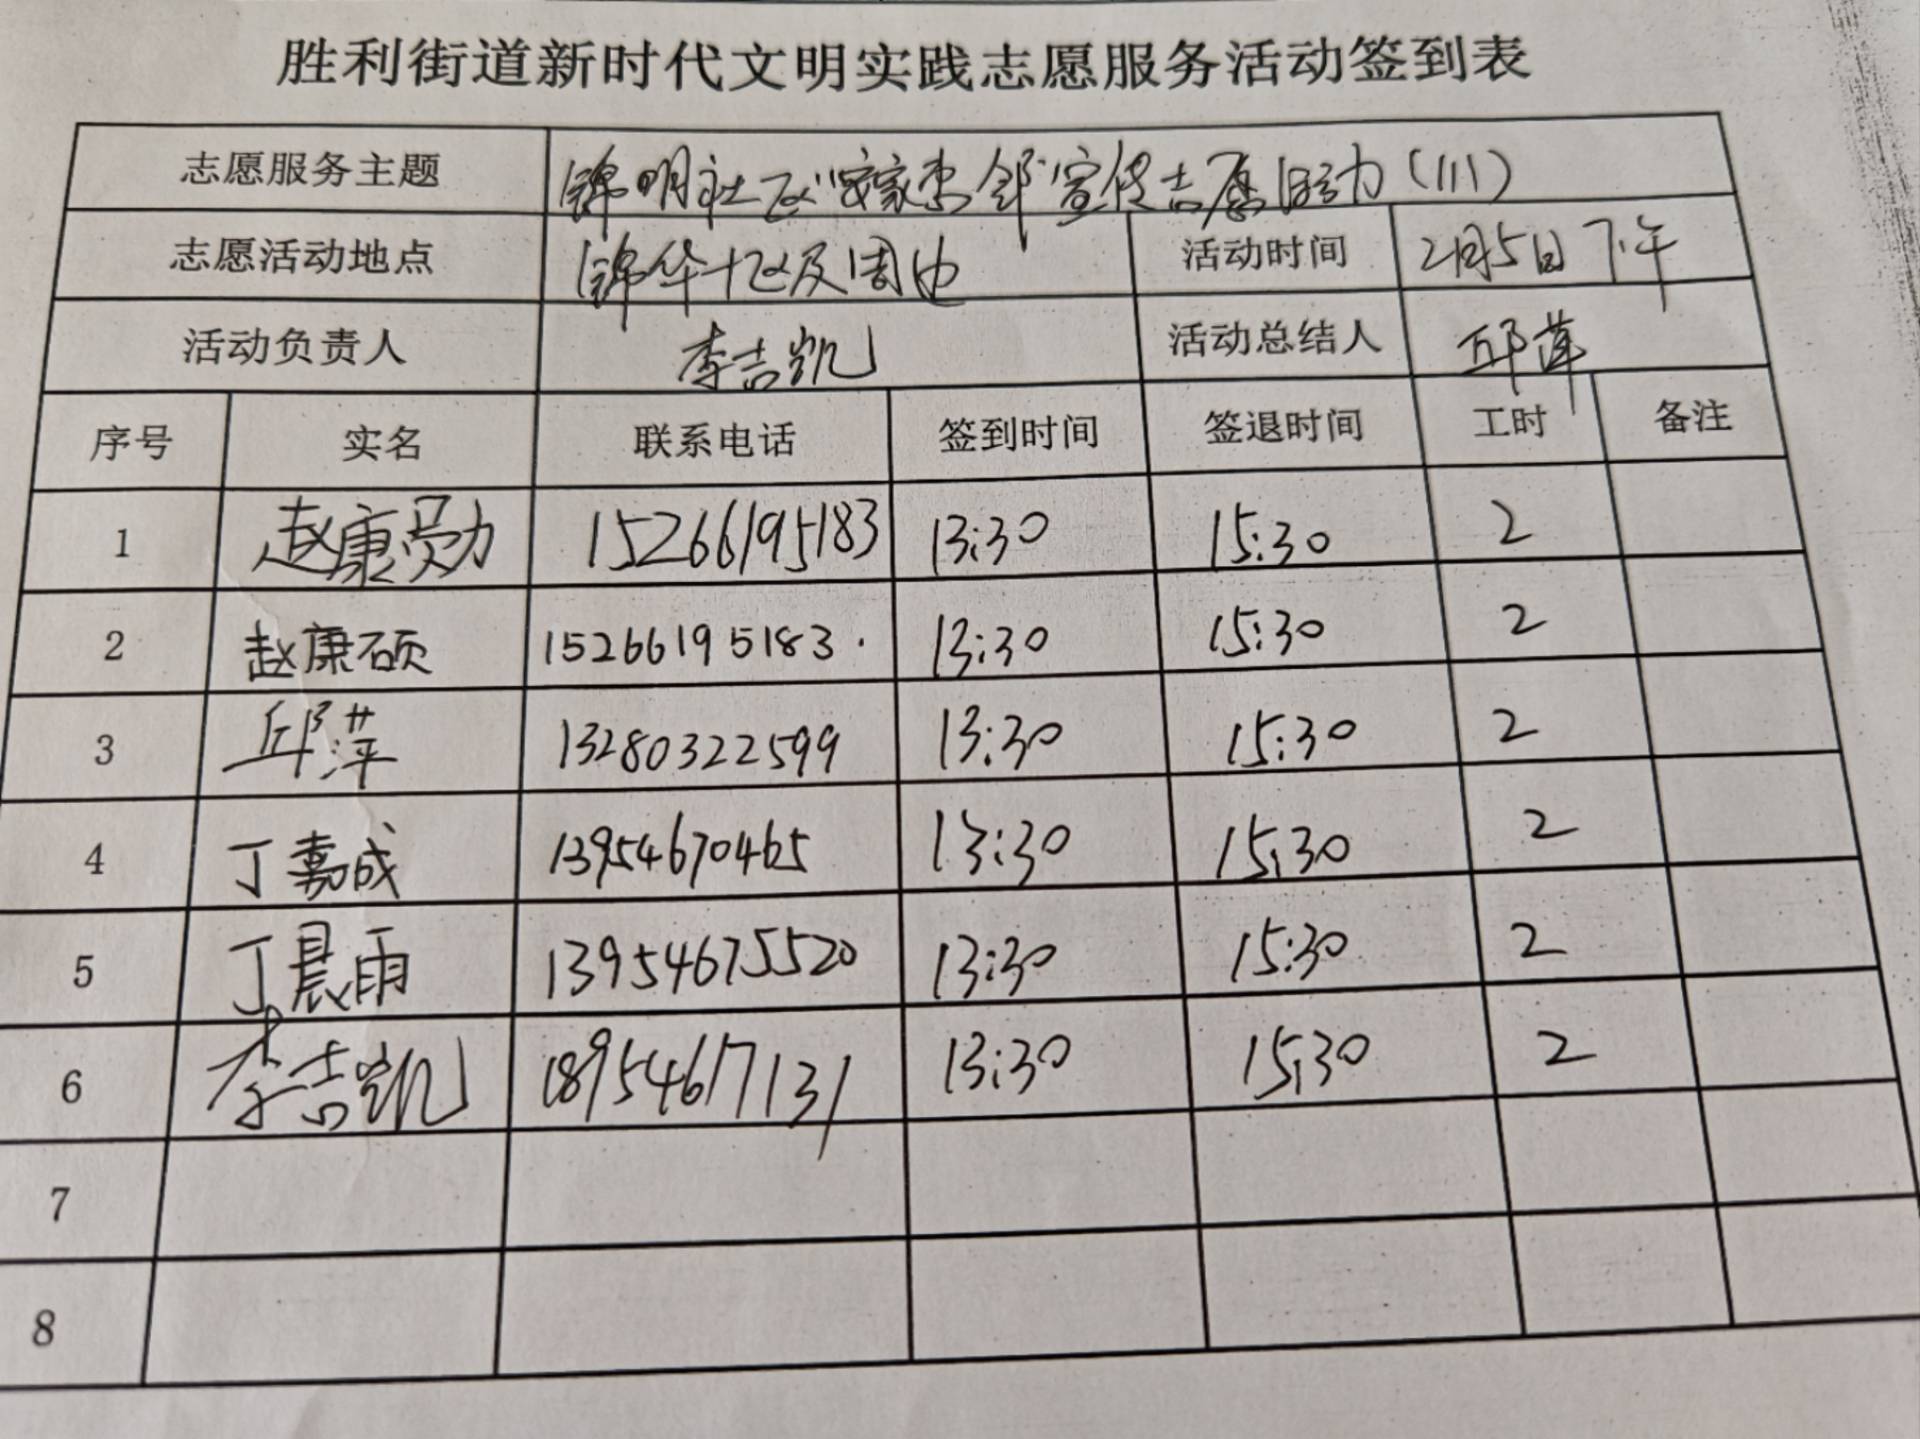 胜利街道新时代文明实践志愿服务活动签到表
志愿服务主题 锦明社区"家家李邻"宣传志愿活动(III)
志愿活动地点 锦华十区及周边 活动时间 2月5日下午
活动负责人 李吉凯 活动总结人 邱萍
序号 实名 联系电话 签到时间 签退时间 工时 备注
1 赵康勋 15266195183 13:30 15:30 2
2 赵康硕 15266195183. 13:30 15:30 2
3 邱萍 13280322599 13:30 15:30 2
4 丁嘉成 13954670465 13:30 15:30 2
5 丁晨雨 13954675520 13:30 15:30 2
6 李吉凯 18954617131 13:30 15:30 2
7
8